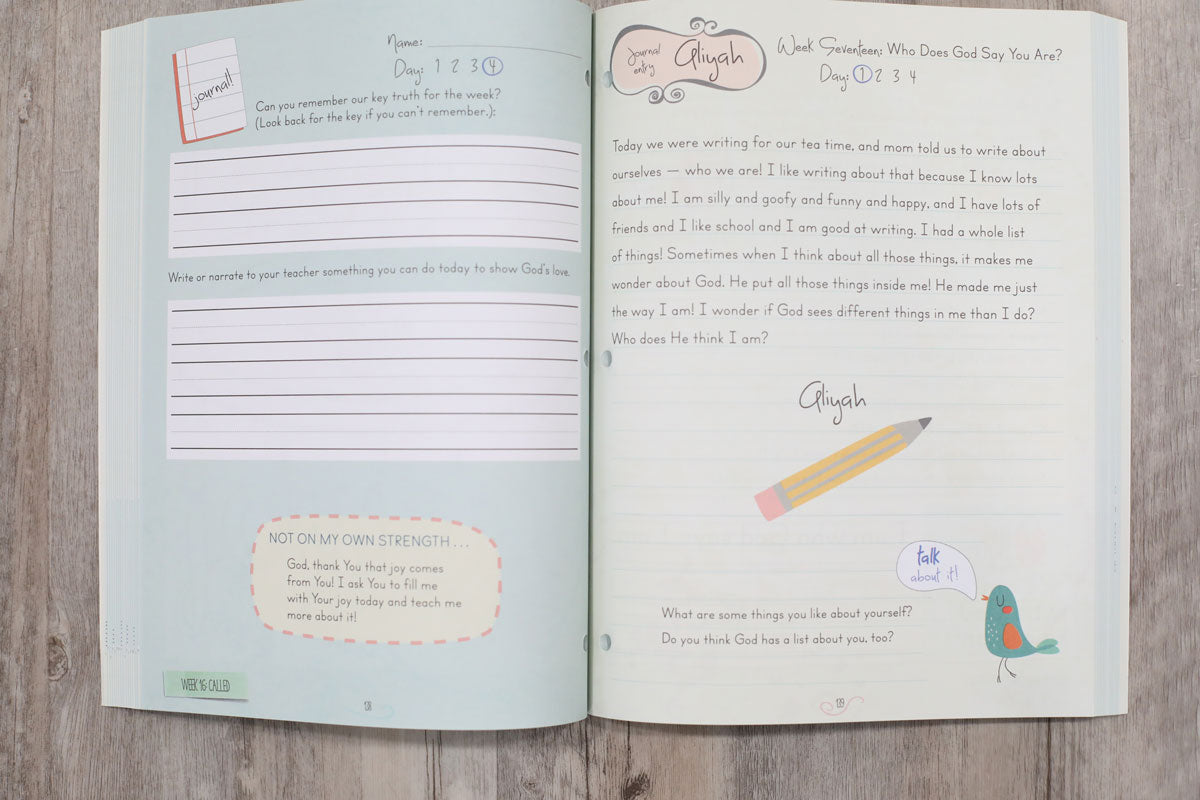 journal!
Name:
Day: 1 2 3 4
Can you remember our key truth for the week?
(Look back for the key if you can't remember.):
Write or narrate to your teacher something you can do today to show God's love.
NOT ON MY OWN STRENGTH . . .
God, thank You that joy comes
from You! I ask You to fill me
with Your joy today and teach me
more about it!
WEEK 16: CALLED
138
Journal
entry
Aliyah
Week Seventeen: Who Does God Say You Are?
Day: 1 2 3 4
Today we were writing for our tea time, and mom told us to write about
ourselves — who we are! I like writing about that because I know lots
about me! I am silly and goofy and funny and happy, and I have lots of
friends and I like school and I am good at writing. I had a whole list
of things! Sometimes when I think about all those things, it makes me
wonder about God. He put all those things inside me! He made me just
the way I am! I wonder if God sees different things in me than I do?
Who does He think I am?
Aliyah
talk
about it!
What are some things you like about yourself?
Do you think God has a list about you, too?
139